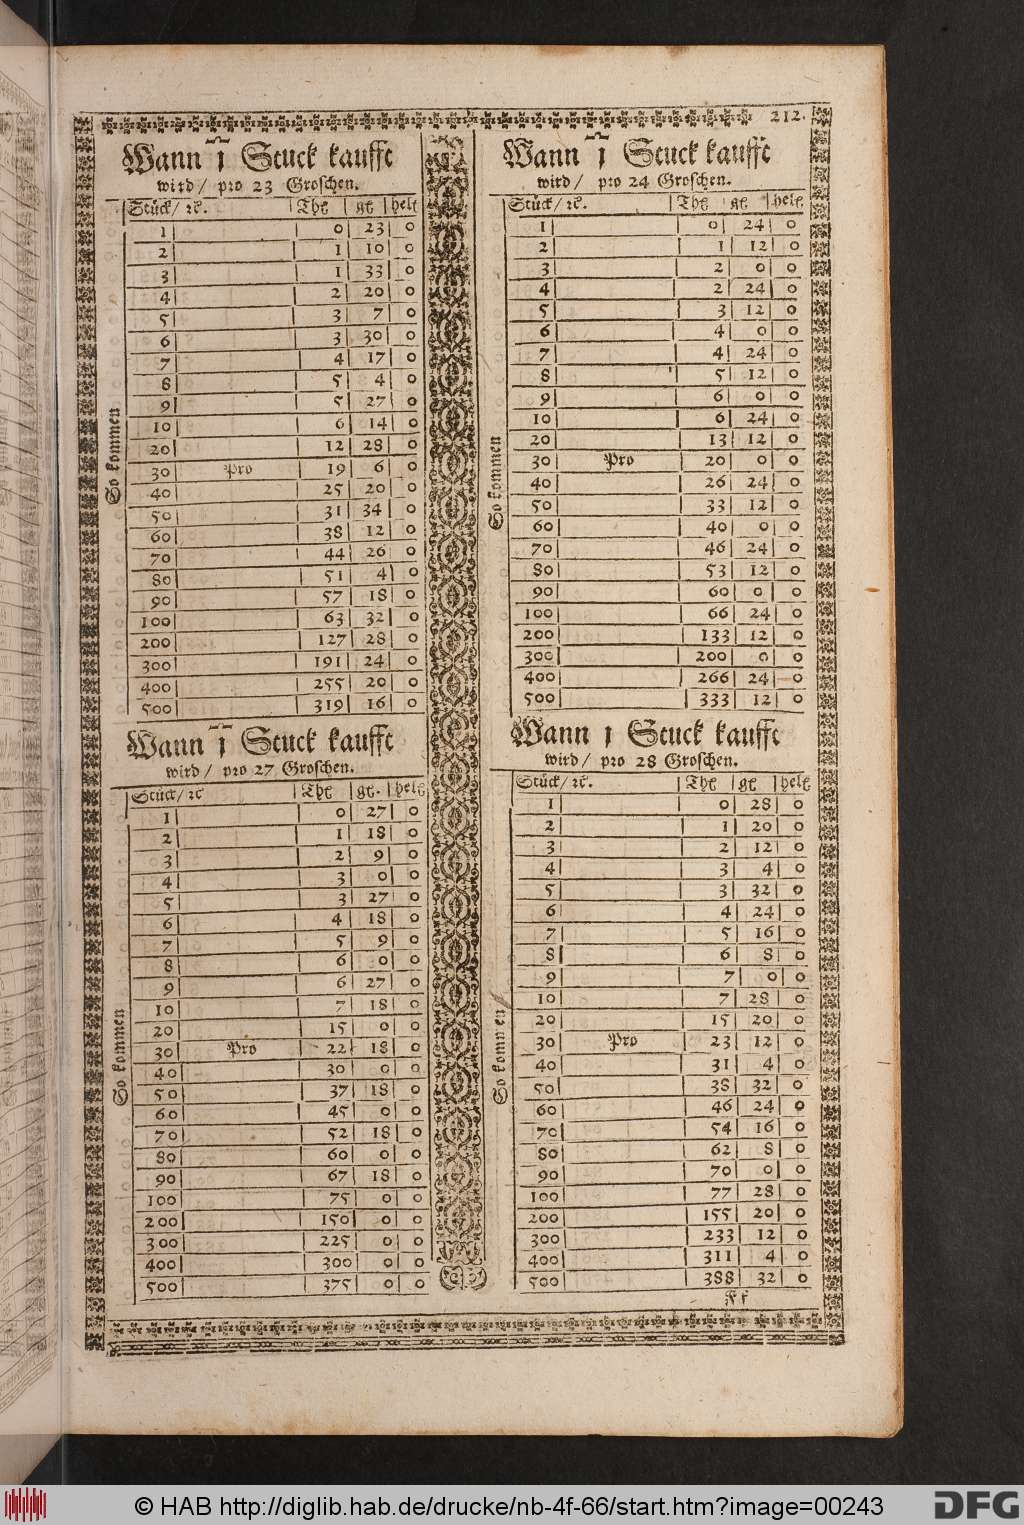 212.
Wann 1 Stuck kaufft
wird/ pro 23 Groschen.
Stück/ ꝛc. Thl gl helt
So kommen
1 0 23 0
2 1 10 0
3 1 33 0
4 2 20 0
5 3 7 0
6 3 30 0
7 4 17 0
8 5 4 0
9 5 27 0
10 6 14 0
20 12 28 0
30 Pro 19 6 0
40 25 20 0
50 31 34 0
60 38 12 0
70 44 26 0
80 51 4 0
90 57 18 0
100 63 32 0
200 127 28 0
300 191 24 0
400 255 20 0
500 319 16 0
Wann 1 Stuck kaufft
wird/ pro 24 Groschen.
Stück/ ꝛc. Thl gl helt
So kommen
1 0 24 0
2 1 12 0
3 2 0 0
4 2 24 0
5 3 12 0
6 4 0 0
7 4 24 0
8 5 12 0
9 6 0 0
10 6 24 0
20 13 12 0
30 Pro 20 0 0
40 26 24 0
50 33 12 0
60 40 0 0
70 46 24 0
80 53 12 0
90 60 0 0
100 66 24 0
200 133 12 0
300 200 0 0
400 266 24 0
500 333 12 0
Wann 1 Stuck kaufft
wird/ pro 27 Groschen.
Stück/ ꝛc Thl gl. helt
So kommen
1 0 27 0
2 1 18 0
3 2 9 0
4 3 0 0
5 3 27 0
6 4 18 0
7 5 9 0
8 6 0 0
9 6 27 0
10 7 18 0
20 15 0 0
30 Pro 22 18 0
40 30 0 0
50 37 18 0
60 45 0 0
70 52 18 0
80 60 0 0
90 67 18 0
100 75 0 0
200 150 0 0
300 225 0 0
400 300 0 0
500 375 0 0
Wann 1 Stuck kaufft
wird/ pro 28 Groschen.
Stück/ ꝛc. Thl gl helt
So kommen
1 0 28 0
2 1 20 0
3 2 12 0
4 3 4 0
5 3 32 0
6 4 24 0
7 5 16 0
8 6 8 0
9 7 0 0
10 7 28 0
20 15 20 0
30 Pro 23 12 0
40 31 4 0
50 38 32 0
60 46 24 0
70 54 16 0
80 62 8 0
90 70 0 0
100 77 28 0
200 155 20 0
300 233 12 0
400 311 4 0
500 388 32 0
Ff
© HAB http://diglib.hab.de/drucke/nb-4f-66/start.htm?image=00243
DFG